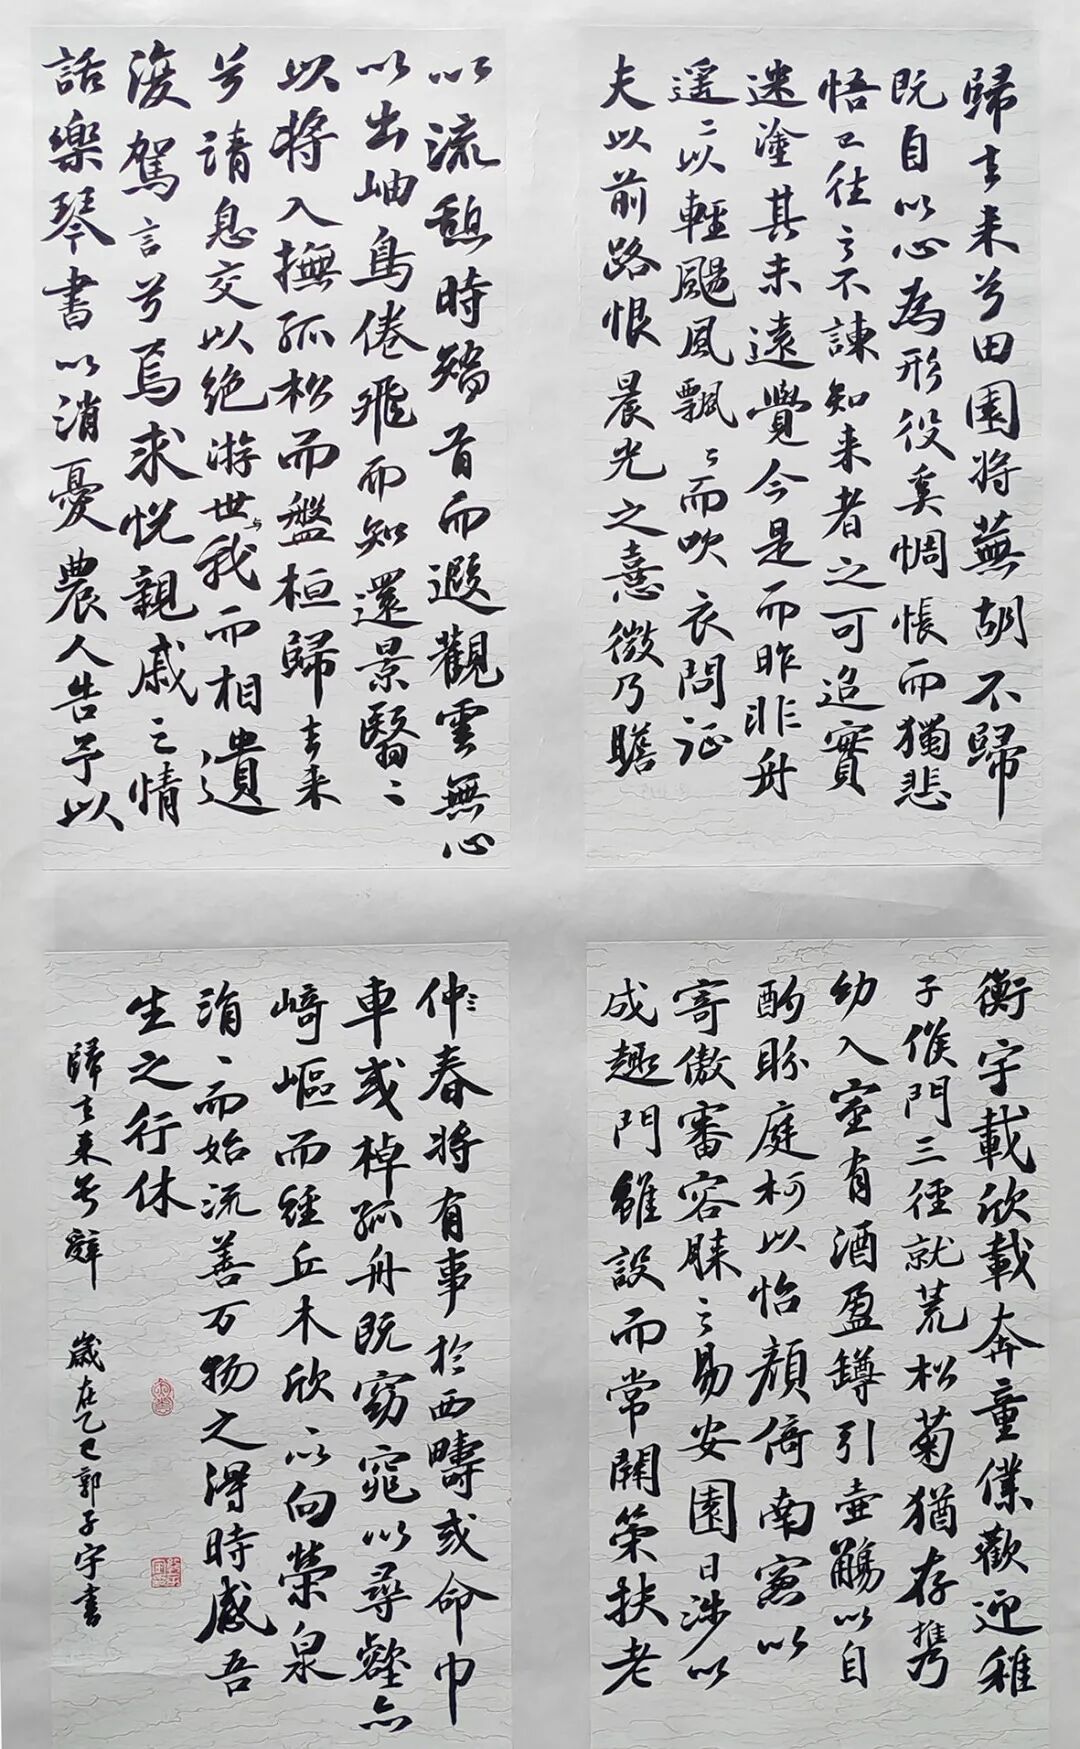 歸去来兮田園将蕪胡不歸
既自以心為形役奚惆悵而獨悲
悟已往之不諫知来者之可追實
迷塗其未遠覺今是而昨非舟
遥〻以輕颺風飄〻而吹衣問征
夫以前路恨晨光之熹微乃瞻
衡宇載欣載奔童僕歡迎稚
子候門三徑就荒松菊猶存携
幼入室有酒盈罇引壺觴以自
酌眄庭柯以怡顔倚南窓以
寄傲審容膝之易安園日涉以
成趣門雖設而常關策扶老
以流憩時矯首而遐觀雲無心
以出岫鳥倦飛而知還景翳〻
以将入撫孤松而盤桓歸去来
兮請息交以绝游世与我而相遺
復駕言兮焉求悦親戚之情
話樂琴書以消憂農人告予以
仲春将有事於西疇或命巾
車或棹孤舟既窈窕以尋壑亦
崎嶇而經丘木欣〻以向榮泉
涓〻而始流善万物之得時感吾
生之行休
歸去来兮辭 歲在乙巳郭子宇書